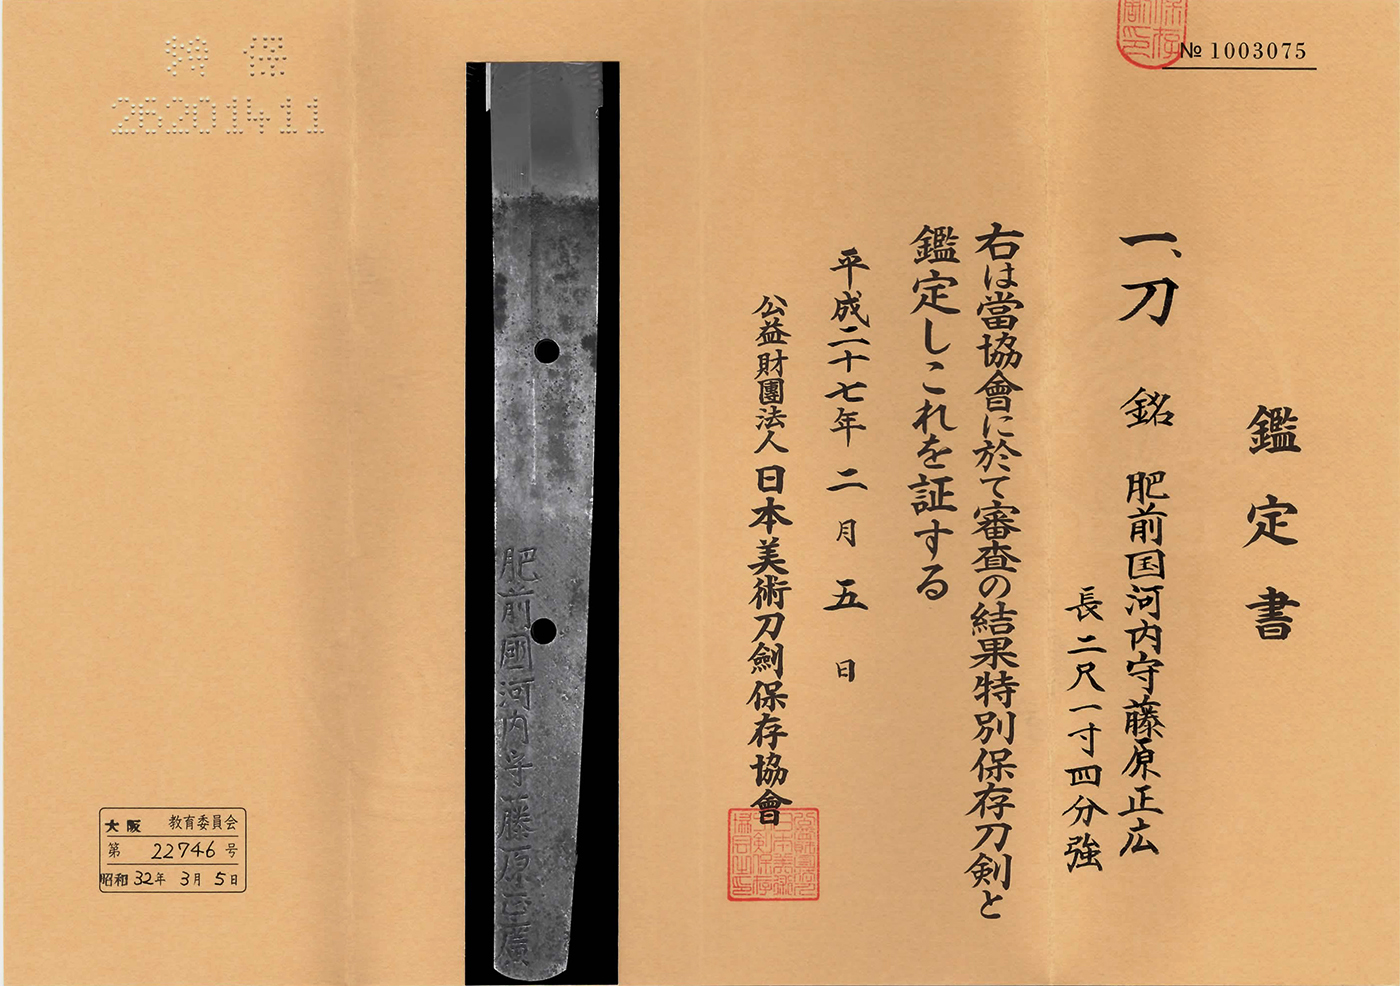 № 1003075
鑑定書
一、刀 銘 肥前国河内守藤原正広
長二尺一寸四分強
右は當協會に於て審査の結果特別保存刀剣と
鑑定しこれを証する
平成二十七年二月五日
公益財團法人日本美術刀劍保存協會
肥前國河内守藤原正廣
特 保
26201411
大阪 教育委員会
第 22746 号
昭和32年 3月 5日